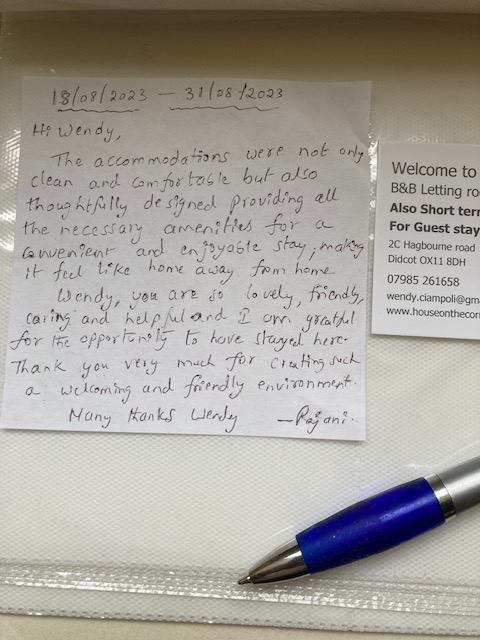 18/08/2023 — 31/08/2023
Hi Wendy,
The accommodations were not only
clean and comfortable but also
thoughtfully designed providing all
the necessary amenities for a
convenient and enjoyable stay, making
it feel like home away from home.
Wendy, you are so lovely, friendly,
caring and helpful and I am greatful
for the opportunity to have stayed here.
Thank you very much for creating such
a welcoming and friendly environment.
Many thanks Wendy
—Rajani.
Welcome to
B&B Letting ro
Also Short term
For Guest stay
2C Hagbourne road
Didcot OX11 8DH
07985 261658
wendy.ciampoli@gm
www.houseonthecor